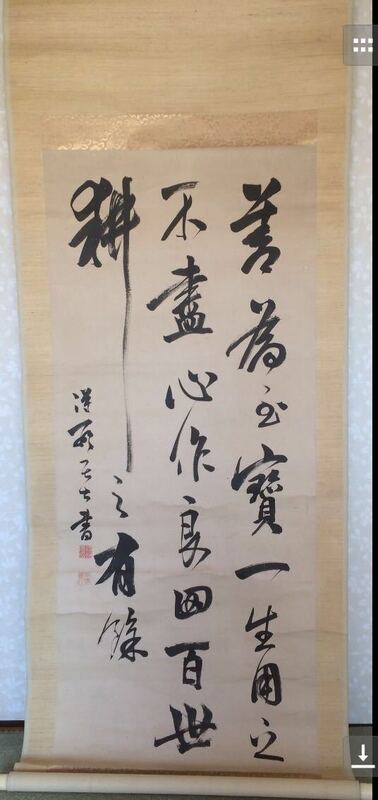 善為至寶一生用之
不盡心作良田百世
耕之有餘
居士書